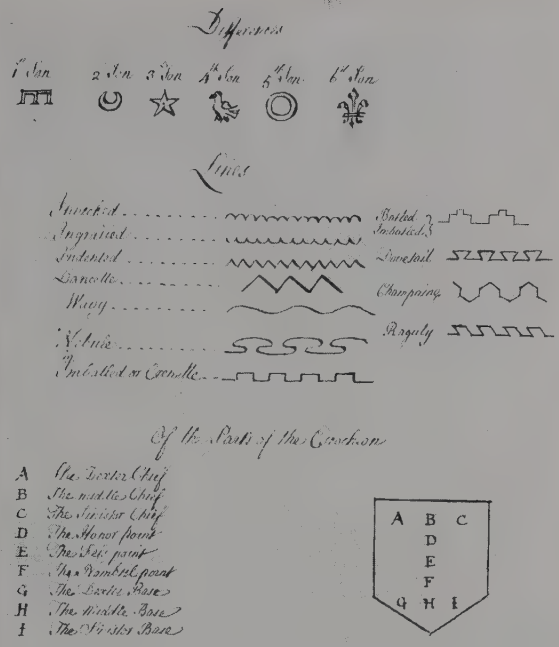 Differences
1st Son 2 Son 3 Son 4th Son 5th Son 6th Son
Lines
Invecked
Ingrailed
Indented
Dancette
Wavy
Nebule
Imbatled or Crenelle
Batled
Imbatled
Dovetail
Champaine
Raguly
Of the Parts of the Escocheon
A The Dexter Chief
B The middle Chief
C The Sinister Chief
D The Honor point
E The Fess point
F The Nombrel point
G The Dexter Base
H The Middle Base
I The Sinister Base
A B C
D
E
F
G H I